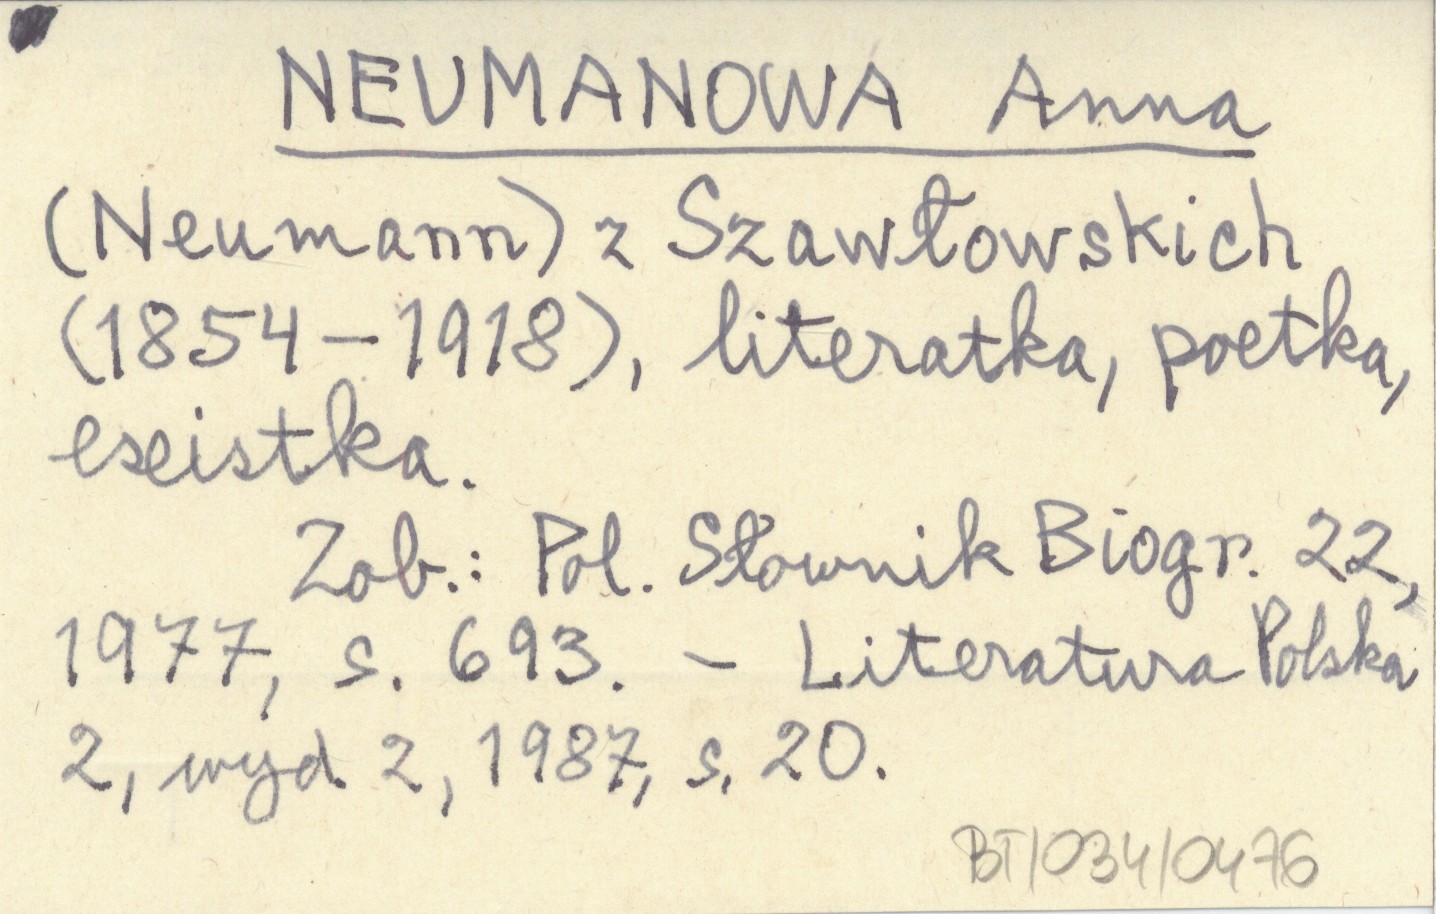 NEUMANOWA Anna
(Neumann) z Szawłowskich
(1854-1918), literatka, poetka,
eseistka.
Zob.: Pol. Słownik Biogr. 22,
1977, s. 693. - Literatura Polska
2, wyd. 2, 1987, s. 20.
BT/034/0476